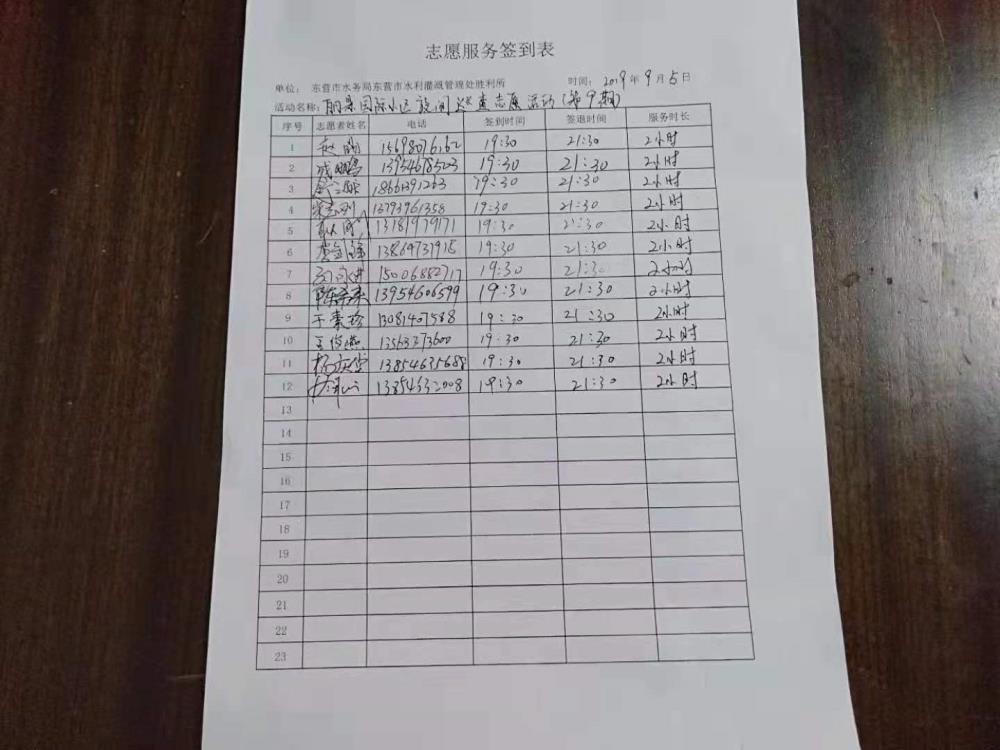 志愿服务签到表
单位： 东营市水务局东营市水利灌溉管理处胜利所 时间： 2019年9月5日
活动名称：丽景国际小区夜间巡查志愿活动(第9期)
序号 志愿者姓名 电话 签到时间 签退时间 服务时长
1 赵 15698076162 19:30 21:30 2小时
2 成鹏 13954678503 19:30 21:30 2小时
3 18661391263 19:30 21:30 2小时
4 13793961358 19:30 21:30 2小时
5 13181979171 19:30 21:30 2小时
6 13864731918 19:30 21:30 2小时
7 15006882717 19:30 21:30 2小时
8 陈希来 13954606599 19:30 21:30 2小时
9 于素珍 13081407588 19:30 21:30 2小时
10 王俊燕 13563373600 19:30 21:30 2小时
11 杨庆堂 13854635688 19:30 21:30 2小时
12 13854332008 19:30 21:30 2小时
13
14
15
16
17
18
19
20
21
22
23